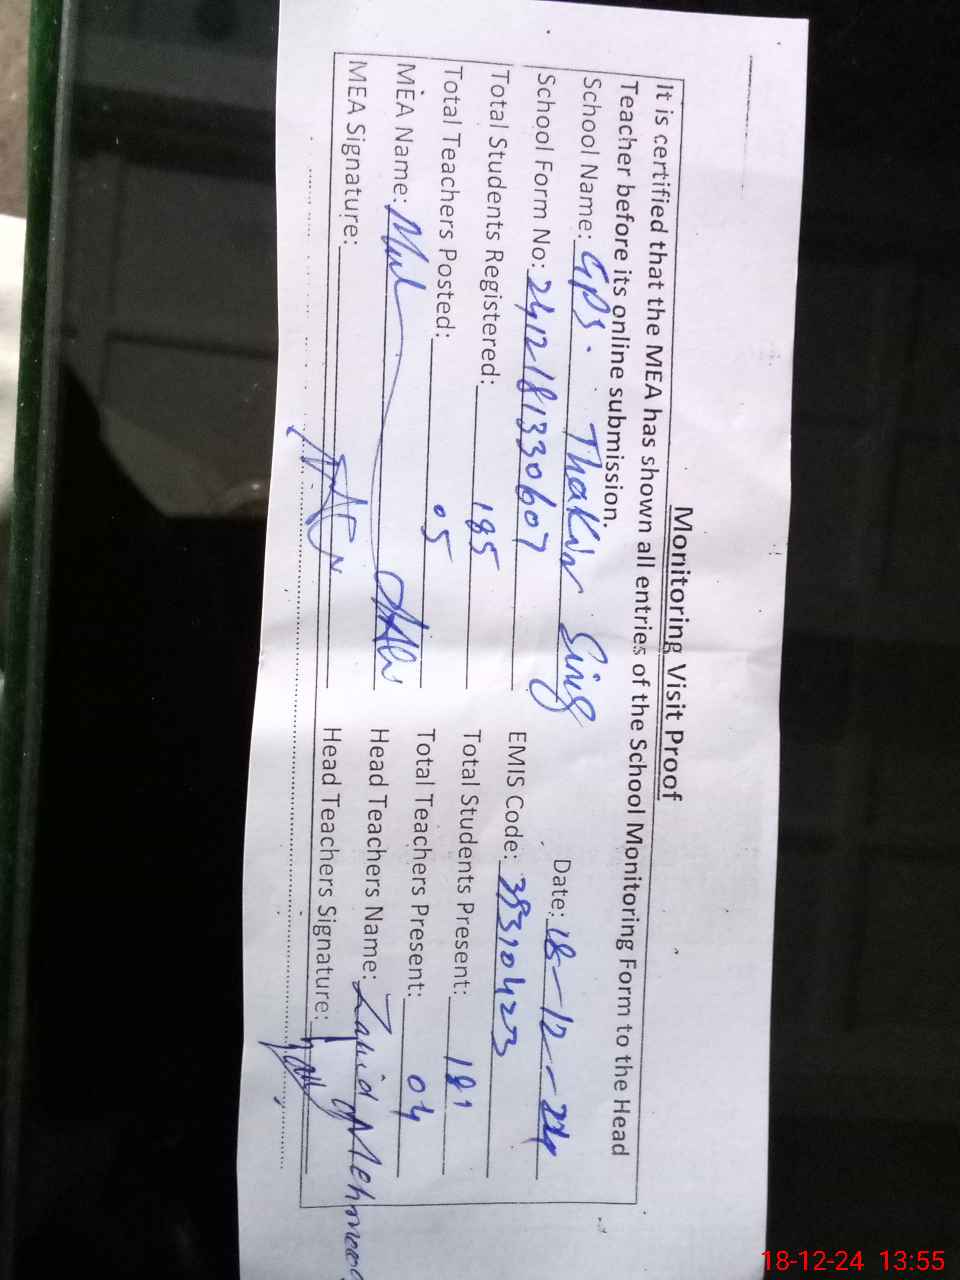 Monitoring Visit Proof
It is certified that the MEA has shown all entries of the School Monitoring Form to the Head
Teacher before its online submission.
School Name: GPS. Thakur Sing Date: 18-12-24
School Form No: 2412181330607 EMIS Code: 38310423
Total Students Registered: 185 Total Students Present: 181
Total Teachers Posted: 05 Total Teachers Present: 04
MEA Name: Head Teachers Name: Zahid Mehmood
MEA Signature: Head Teachers Signature:
18-12-24 13:55